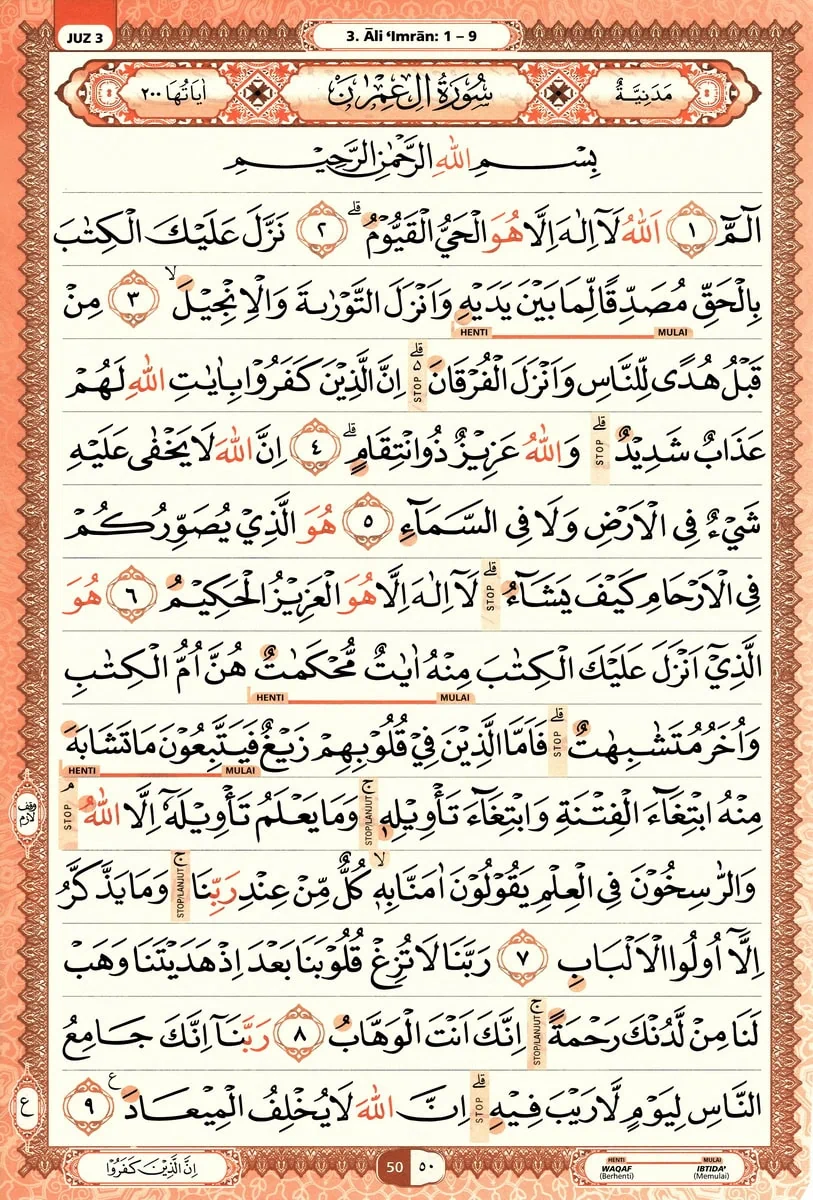 JUZ 3
3. Āli ‘Imrān: 1 – 9
مَدَنِيَّةٌ
سُوْرَةُ اٰلِ عِمْرٰنَ
اٰيَاتُهَا ٢٠٠
بِسْمِ اللّٰهِ الرَّحْمٰنِ الرَّحِيْمِ
الۤمّۤ ١ اَللّٰهُ لَآ اِلٰهَ اِلَّا هُوَ الْحَيُّ الْقَيُّوْمُۗ ٢ نَزَّلَ عَلَيْكَ الْكِتٰبَ
بِالْحَقِّ مُصَدِّقًا لِّمَا بَيْنَ يَدَيْهِ وَاَنْزَلَ التَّوْرٰىةَ وَالْاِنْجِيْلَۙ ٣ مِنْ
HENTI MULAI
قَبْلُ هُدًى لِّلنَّاسِ وَاَنْزَلَ الْفُرْقَانَۗ ە STOP اِنَّ الَّذِيْنَ كَفَرُوْا بِاٰيٰتِ اللّٰهِ لَهُمْ
عَذَابٌ شَدِيْدٌۗ STOP وَاللّٰهُ عَزِيْزٌ ذُو انْتِقَامٍۗ ٤ اِنَّ اللّٰهَ لَا يَخْفٰى عَلَيْهِ
شَيْءٌ فِى الْاَرْضِ وَلَا فِى السَّمَاۤءِ ٥ هُوَ الَّذِيْ يُصَوِّرُكُمْ
فِى الْاَرْحَامِ كَيْفَ يَشَاۤءُۗ STOP لَآ اِلٰهَ اِلَّا هُوَ الْعَزِيْزُ الْحَكِيْمُ ٦ هُوَ
الَّذِيْٓ اَنْزَلَ عَلَيْكَ الْكِتٰبَ مِنْهُ اٰيٰتٌ مُّحْكَمٰتٌ هُنَّ اُمُّ الْكِتٰبِ
HENTI MULAI
وَاُخَرُ مُتَشٰبِهٰتٌۗ STOP فَاَمَّا الَّذِيْنَ فِيْ قُلُوْبِهِمْ زَيْغٌ فَيَتَّبِعُوْنَ مَا تَشَابَهَ
HENTI MULAI
مِنْهُ ابْتِغَاۤءَ الْفِتْنَةِ وَابْتِغَاۤءَ تَأْوِيْلِهٖۚ STOP/LANJUT وَمَا يَعْلَمُ تَأْوِيْلَهٗٓ اِلَّا اللّٰهُۘ STOP
وقف لازم
وَالرّٰسِخُوْنَ فِى الْعِلْمِ يَقُوْلُوْنَ اٰمَنَّا بِهٖۙ كُلٌّ مِّنْ عِنْدِ رَبِّنَاۚ STOP/LANJUT وَمَا يَذَّكَّرُ
اِلَّآ اُولُوا الْاَلْبَابِ ٧ رَبَّنَا لَا تُزِغْ قُلُوْبَنَا بَعْدَ اِذْ هَدَيْتَنَا وَهَبْ
لَنَا مِنْ لَّدُنْكَ رَحْمَةًۚ STOP/LANJUT اِنَّكَ اَنْتَ الْوَهَّابُ ٨ رَبَّنَآ اِنَّكَ جَامِعُ
النَّاسِ لِيَوْمٍ لَّا رَيْبَ فِيْهِۗ STOP اِنَّ اللّٰهَ لَا يُخْلِفُ الْمِيْعَادَ ࣖ ٩
ع
اِنَّ الَّذِيْنَ كَفَرُوْا
50 ٥٠
HENTI MULAI
WAQAF IBTIDA’
(Berhenti) (Memulai)